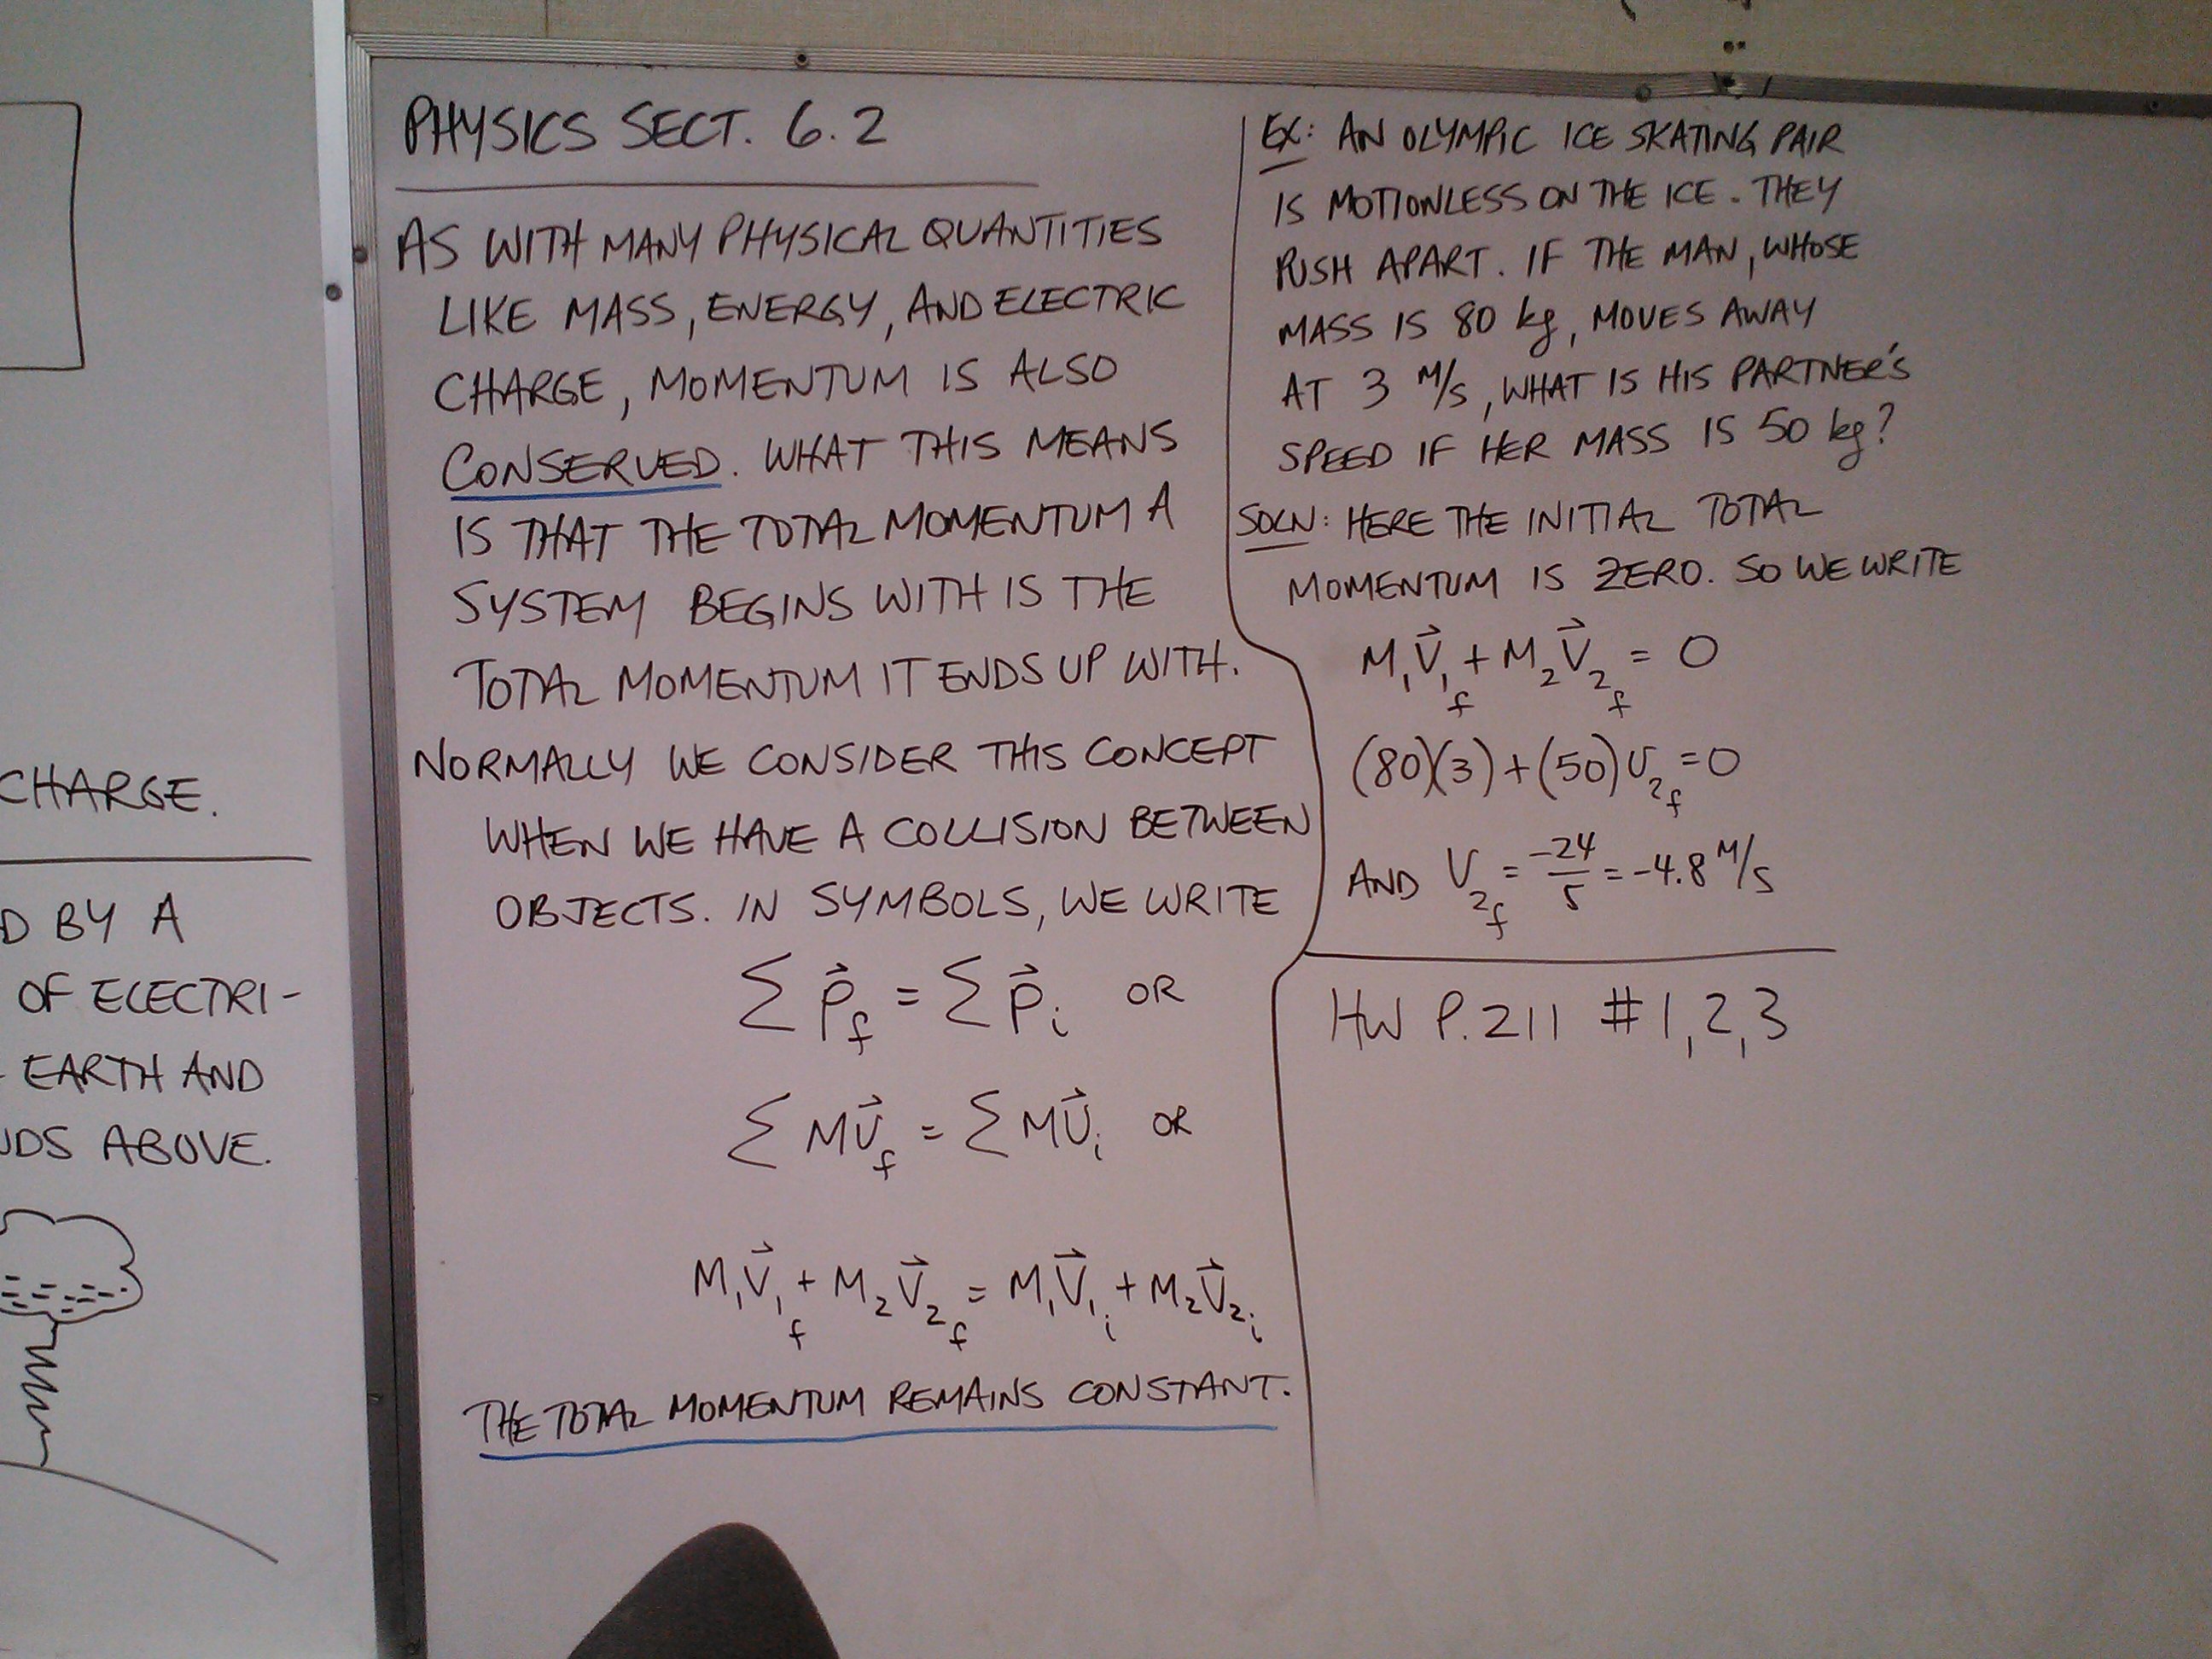 CHARGE.
D BY A
OF ELECTRI-
EARTH AND
DS ABOVE.
PHYSICS SECT. 6.2
AS WITH MANY PHYSICAL QUANTITIES
LIKE MASS, ENERGY, AND ELECTRIC
CHARGE, MOMENTUM IS ALSO
CONSERVED. WHAT THIS MEANS
IS THAT THE TOTAL MOMENTUM A
SYSTEM BEGINS WITH IS THE
TOTAL MOMENTUM IT ENDS UP WITH.
NORMALLY WE CONSIDER THIS CONCEPT
WHEN WE HAVE A COLLISION BETWEEN
OBJECTS. IN SYMBOLS, WE WRITE
∑ p⃗_f = ∑ p⃗_i OR
∑ Mv⃗_f = ∑ Mv⃗_i OR
M₁v⃗₁_f + M₂v⃗₂_f = M₁v⃗₁_i + M₂v⃗₂_i
THE TOTAL MOMENTUM REMAINS CONSTANT.
EX: AN OLYMPIC ICE SKATING PAIR
IS MOTIONLESS ON THE ICE. THEY
PUSH APART. IF THE MAN, WHOSE
MASS IS 80 kg, MOVES AWAY
AT 3 M/S, WHAT IS HIS PARTNER'S
SPEED IF HER MASS IS 50 kg?
SOLN: HERE THE INITIAL TOTAL
MOMENTUM IS ZERO. SO WE WRITE
M₁v⃗₁_f + M₂v⃗₂_f = 0
(80)(3) + (50)v₂_f = 0
AND v₂_f = -24/5 = -4.8 M/S
HW P. 211 #1,2,3